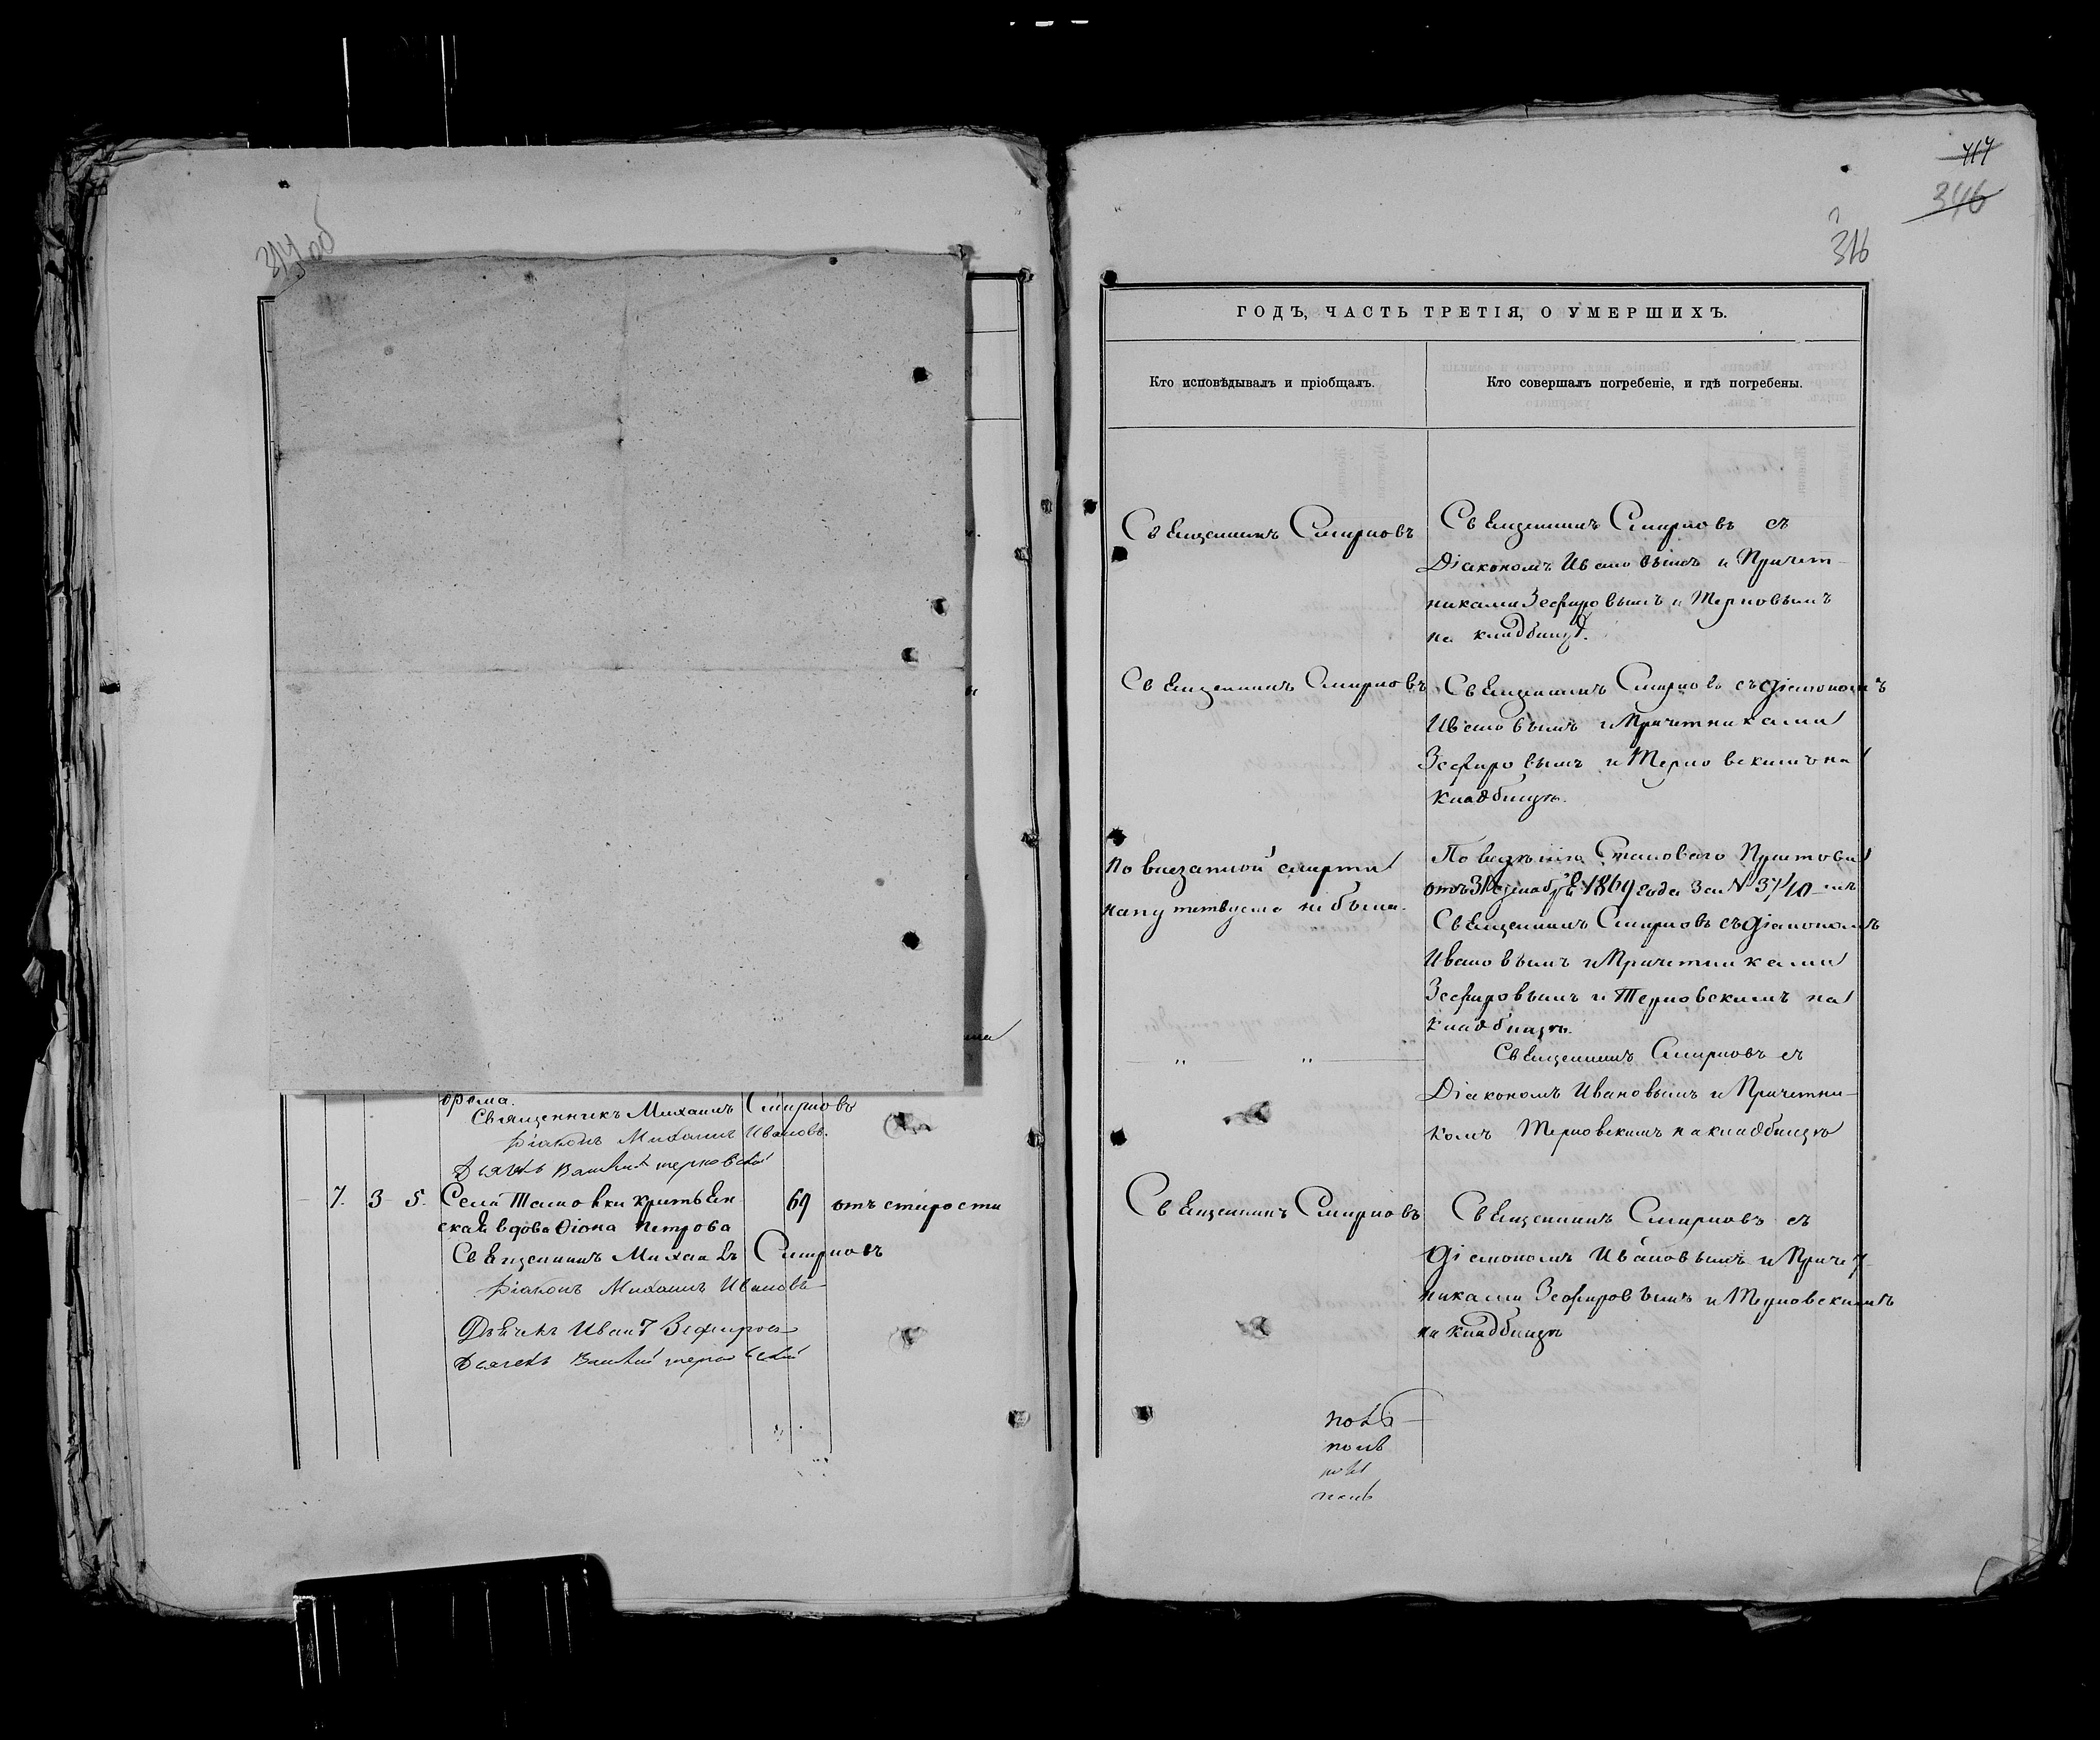 314 об
орема.
Священникъ Михаилъ Смирновъ
Діаконъ Михаилъ Ивановъ.
Дьячекъ терновскій
7. 3 5. Села крестьян- 69 отъ старости
ская вдова Ѳіона Петрова
Священникъ Михаилъ Смирновъ
Діаконъ Михаилъ Ивановъ
Дьячекъ Иванъ Зефировъ
Дьячекъ терновскій
417
346
316
ГОДЪ, ЧАСТЬ ТРЕТІЯ, О УМЕРШИХЪ.
Кто исповѣдывалъ и пріобщалъ.
Кто совершалъ погребеніе, и гдѣ погребены.
Священникъ Смирновъ
Священникъ Смирновъ съ
Діакономъ Ивановымъ и Причет-
никами Зефировымъ и Терновымъ
на кладбищѣ.
Священникъ Смирновъ
Священникъ Смирновъ съ діакономъ
Ивановымъ и Причетниками
Зефировымъ и Терновскимъ на
кладбищѣ.
По внезапной смерти
напутствуема не была.
По Становаго Пристова
отъ 31 Декабря 1869 года за № 3710
Священникъ Смирновъ съ діакономъ
Ивановымъ и Причетниками
Зефировымъ и Терновскимъ на
кладбищѣ.
" "
Священникъ Смирновъ съ
Діакономъ Ивановымъ и Причетни-
комъ Терновскимъ на кладбищѣ
Священникъ Смирновъ
Священникъ Смирновъ съ
діакономъ Ивановымъ и Причет-
никами Зефировымъ и Терновскимъ
на кладбищѣ